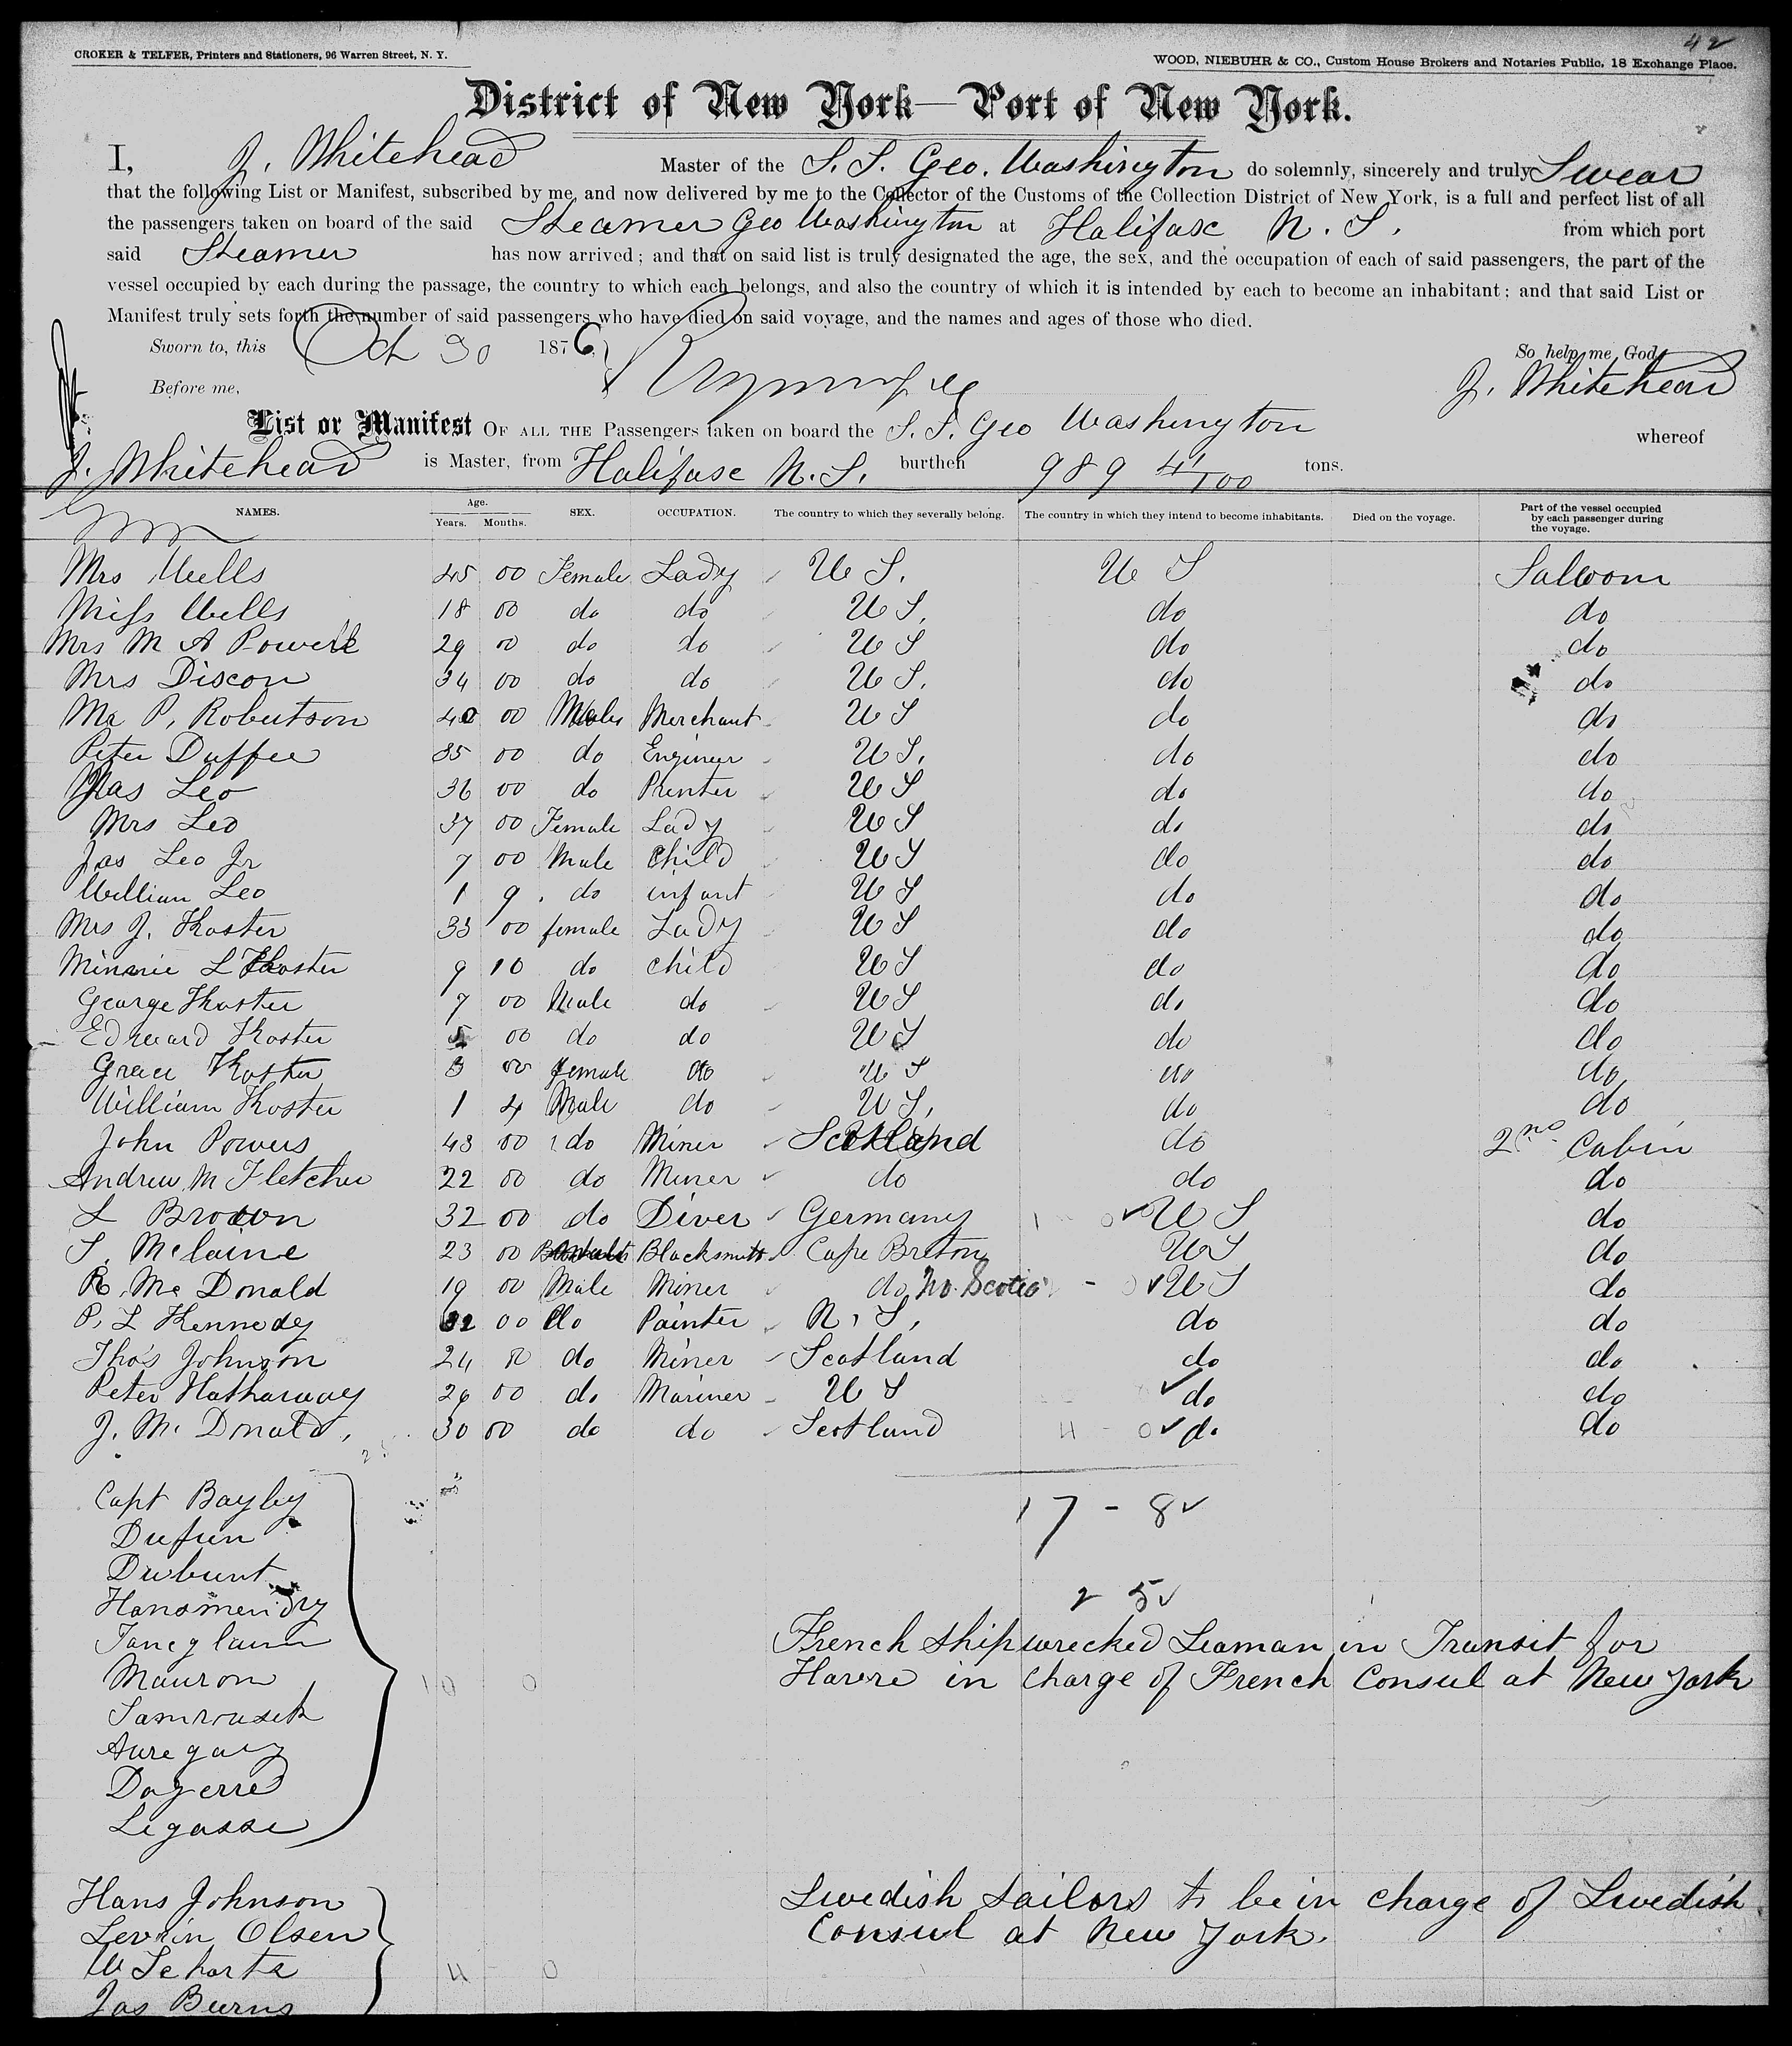 42
CROKER & TELFER, Printers and Stationers, 96 Warren Street, N. Y.
WOOD, NIEBUHR & CO., Custom House Brokers and Notaries Public, 18 Exchange Place.
District of New York—Port of New York.
I, J. Whitehead Master of the S. S. Geo. Washington do solemnly, sincerely and truly Swear
that the following List or Manifest, subscribed by me, and now delivered by me to the Collector of the Customs of the Collection District of New York, is a full and perfect list of all
the passengers taken on board of the said Steamer Geo Washington at Halifax N. S. from which port
said Steamer has now arrived; and that on said list is truly designated the age, the sex, and the occupation of each of said passengers, the part of the
vessel occupied by each during the passage, the country to which each belongs, and also the country of which it is intended by each to become an inhabitant; and that said List or
Manifest truly sets forth the number of said passengers who have died on said voyage, and the names and ages of those who died.
Sworn to, this Oct 30 1876 So help me God,
Before me, J. Whitehead
List or Manifest OF ALL THE Passengers taken on board the S. S. Geo Washington whereof
J. Whitehead is Master, from Halifax N. S. burthen 989 41/100 tons.
NAMES. Age. Years. Months. SEX. OCCUPATION. The country to which they severally belong. The country in which they intend to become inhabitants. Died on the voyage. Part of the vessel occupied by each passenger during the voyage.
Mrs Wells 45 00 Female Lady U S. U S Saloon
Miss Wells 18 00 do do U S. do do
Mrs M A Powell 29 00 do do U S do do
Mrs Dixon 34 00 do do U S. do do
Mr P. Robertson 40 00 Male Merchant U S do do
Peter Duffee 35 00 do Engineer U S. do do
Jas Leo 36 00 do Printer U S do do
Mrs Leo 37 00 Female Lady U S do do
Jas Leo Jr 7 00 Male Child U S do do
William Leo 1 9 do infant U S do do
Mrs J. Koster 33 00 female Lady U S do do
Minnie L Koster 9 10 do child U S do do
George Koster 7 00 Male do U S do do
Edward Koster 5 00 do do U S do do
Grace Koster 3 00 female do U S do do
William Koster 1 4 Male do U S. do do
John Powers 43 00 do Miner Scotland do 2nd Cabin
Andrew M Fletcher 22 00 do Miner do do do
L Brown 32 00 do Diver Germany U S do
S. McLaine 23 00 Blacksmith Cape Breton U S do
R. Mc Donald 19 00 Male Miner do No. Scotia U S do
P. L Kennedy 32 00 do Painter N. S. do do
Thos Johnson 24 00 do Miner Scotland do do
Peter Hathaway 26 00 do Mariner U S do do
J. Mc Donald, 30 00 do do Scotland do do
Capt Bayby
17 - 8
Dufun
Dubunt
2 5
French shipwrecked Seaman in Transit for
Mauron 10 0 Havre in charge of French Consul at New York
Dagerre
Legasse
Hans Johnson Swedish Sailors to be in charge of Swedish
Olsen Consul at New York.
W Scharta 4 0
Jas Burns